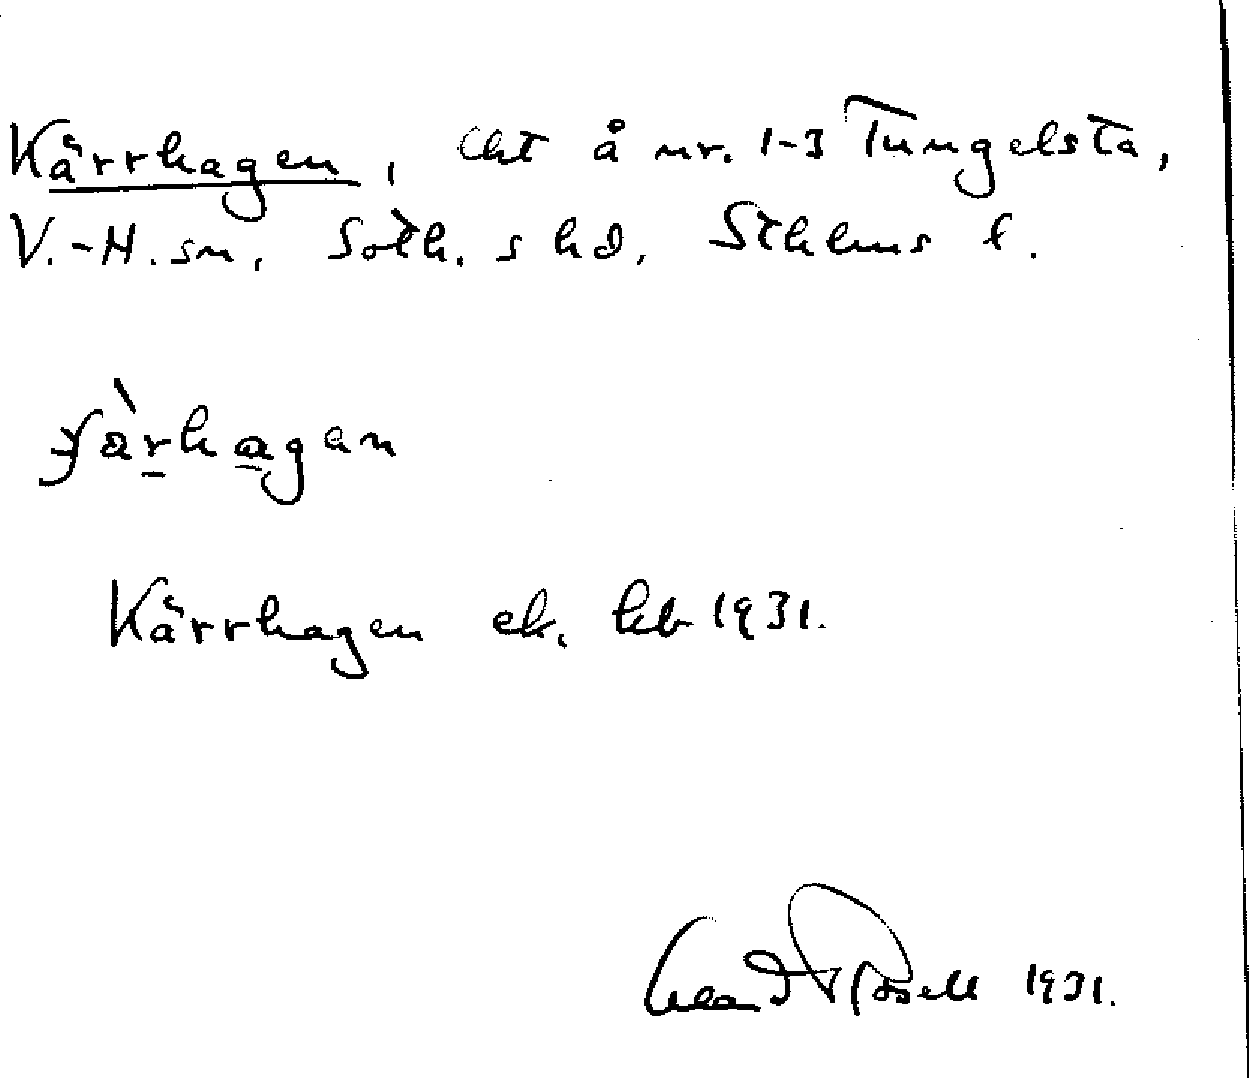 Kärrhagen, lht å nr. 1-3 Tungelsta,
V.-H. sn, Soth. s hd, Sthlms l.
Kärrhagen ek. kb 1931.
1931.